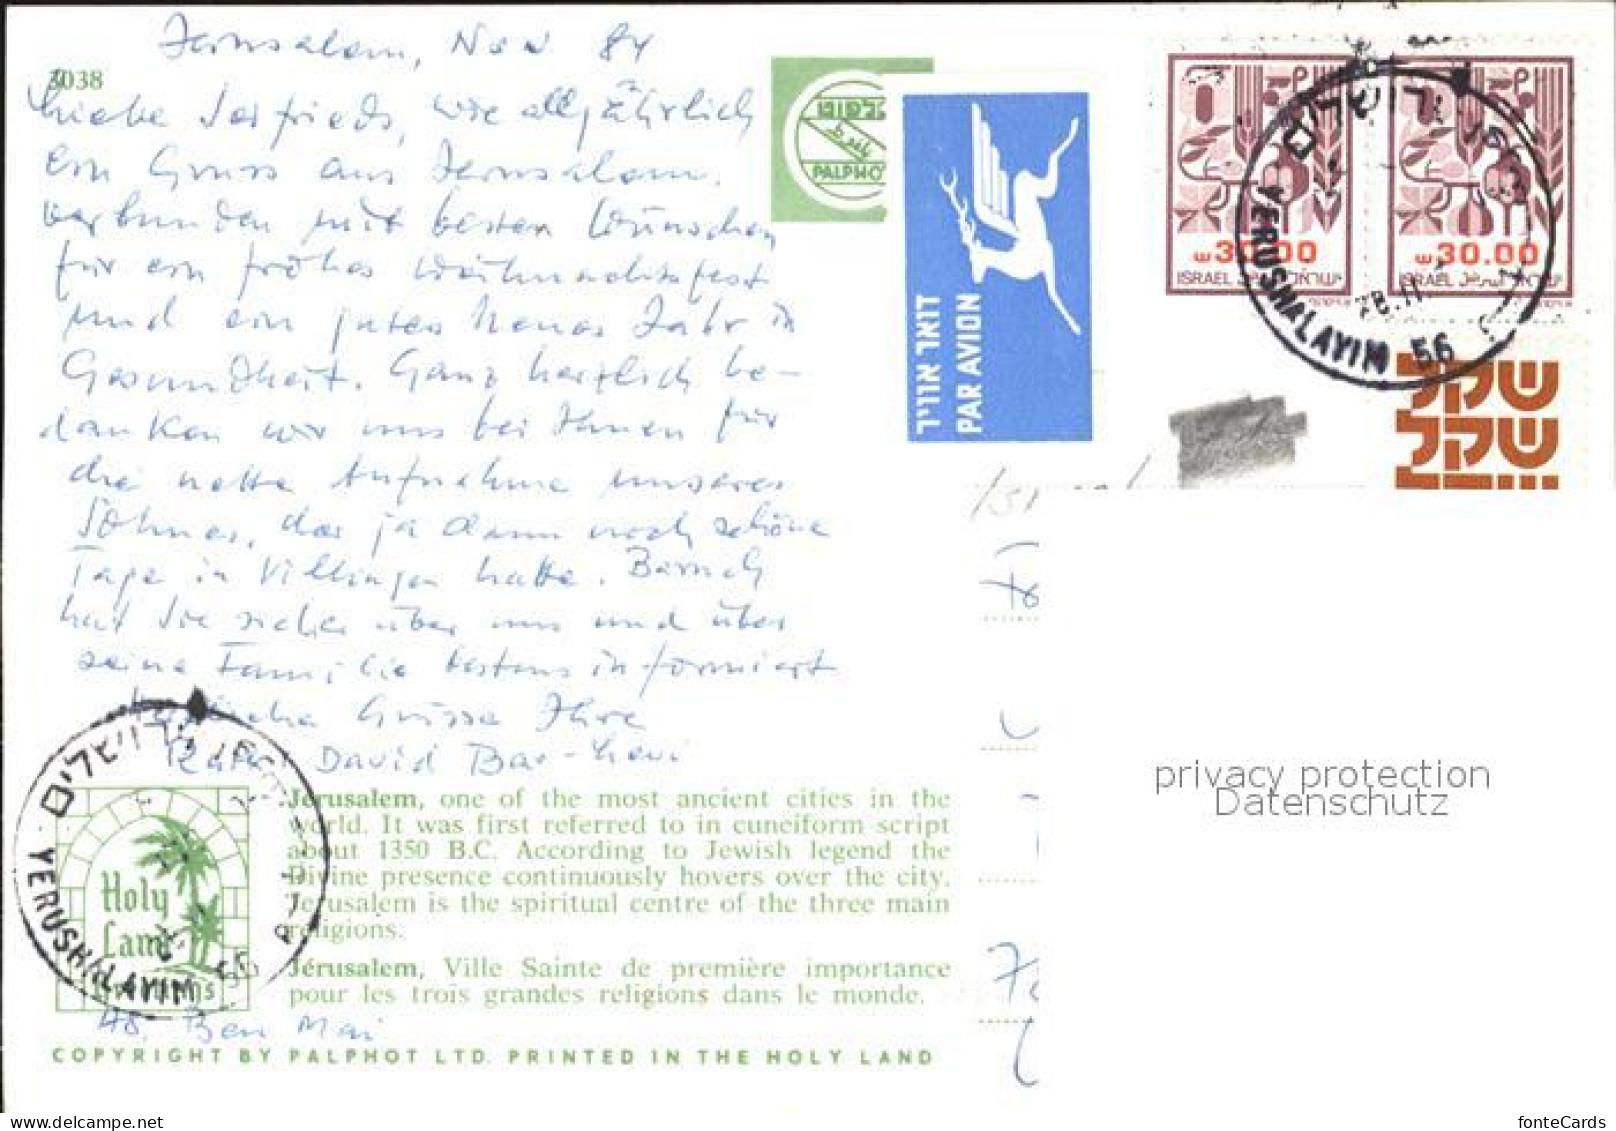 Jerusalem, Nov 84
3038
Liebe Seifrieds, wie alljährlich
ein Gruss aus Jerusalem,
verbunden mit besten Wünschen
für ein frohes Weihnachtsfest
und ein gutes Neues Jahr in
Gesundheit. Ganz herzlich be-
danken wir uns bei Ihnen für
die nette Aufnahme unseres
Sohnes, der ja dann noch schöne
Tage in Villingen hatte. Baruch
hat Sie sicher über uns und über
seine Familie bestens informiert
Herzliche Grüsse Ihre
David Bar-Levi
פלפוט
PALPHO
דואר אוויר
PAR AVION
ש 30.00
ISRAEL ישראל
ש 30.00
ISRAEL ישראל
ירושלים
YERUSHALAYIM 56
28.11.
שקל
שקל
שקל
Israel
ירושלים
YERUSHALAYIM 56
Holy
Land
Jerusalem, one of the most ancient cities in the
world. It was first referred to in cuneiform script
about 1350 B.C. According to Jewish legend the
Divine presence continuously hovers over the city.
Jerusalem is the spiritual centre of the three main
religions.
Jérusalem, Ville Sainte de première importance
pour les trois grandes religions dans le monde.
Ben Mai
COPYRIGHT BY PALPHOT LTD. PRINTED IN THE HOLY LAND
privacy protection
Datenschutz
www.delcampe.net
fonteCards